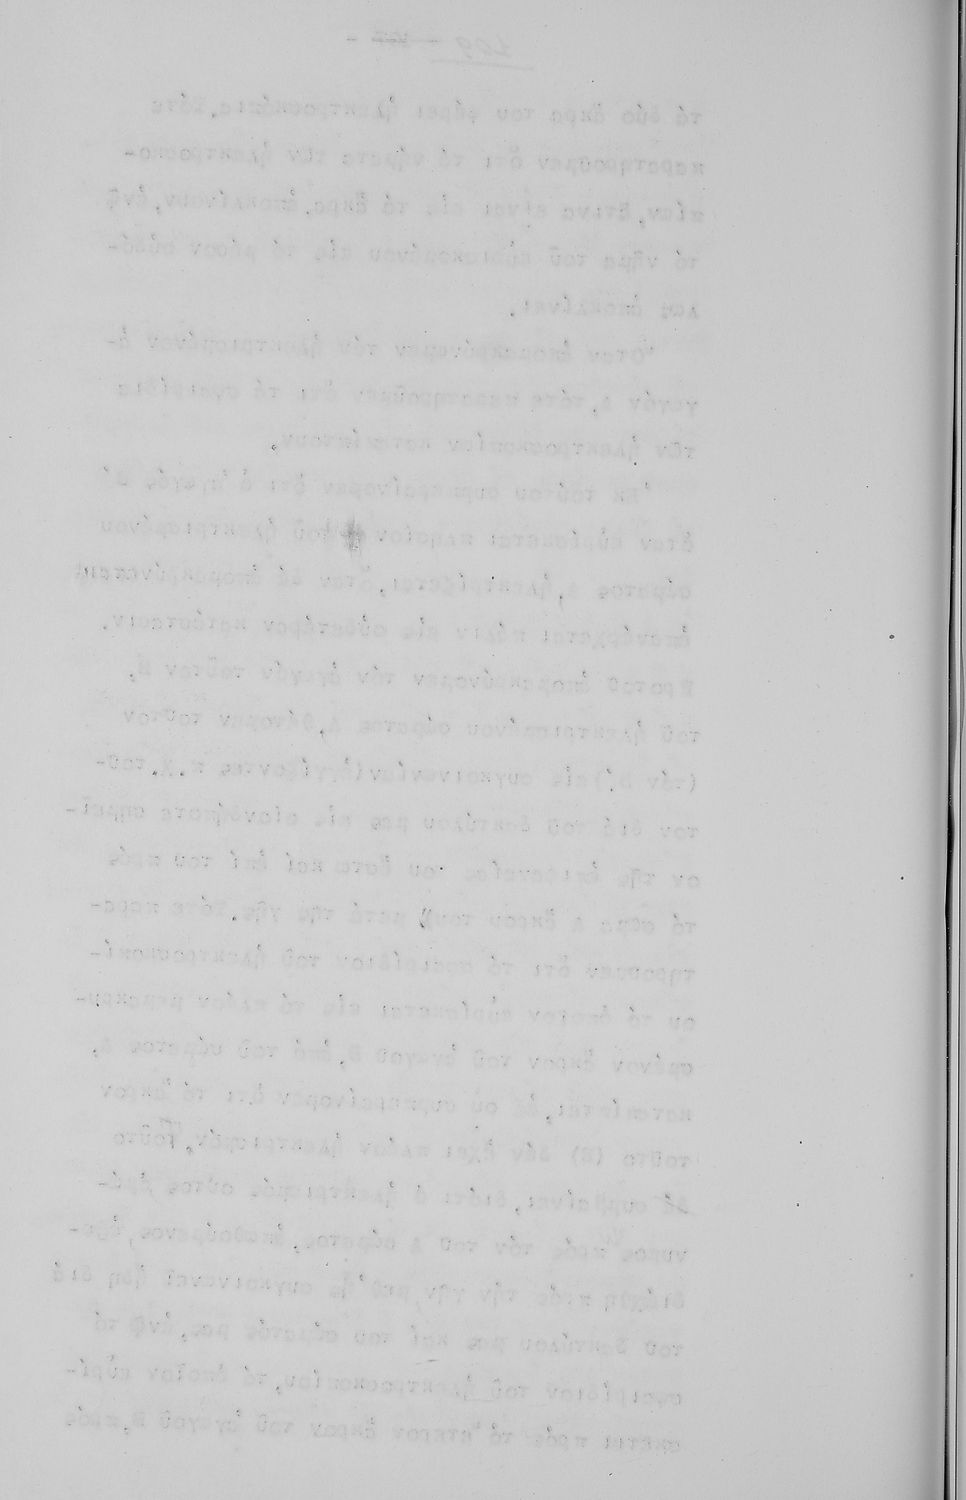 209
τά δύο ἄκρα του φέρει ἠλεκτροσκόπια, τότε
παρατηροῦμεν ὅτι τά νήματα τῶν ἠλεκτροσκο-
πίων, ἅτινα εἶναι εἰς τά ἄκρα, ἀποκλίνουν, ἐνῷ
τό νῆμα τοῦ εὑρισκομένου εἰς τό μέσον οὐδό-
λως ἀποκλίνει.
Ὅταν ἀπομακρύνωμεν τόν ἠλεκτρισμένον ἀ-
γωγόν Α, τότε παρατηροῦμεν ὅτι τά σφαιρίδια
τῶν ἠλεκτροσκοπίων καταπίπτουν.
Ἐκ τούτου συμπεραίνομεν ὅτι ὁ ἀγωγός Β
ὅταν εὑρίσκεται πλησίον τοῦ ἠλεκτρισμένου
σώματος Α, ἠλεκτρίζεται, ὅταν δέ ἀπομακρύνεται
ἐπανέρχεται πάλιν εἰς οὐδετέραν κατάστασιν.
Προτοῦ ἀπομακρύνομεν τόν ἀγωγόν τοῦτον Β,
τοῦ ἠλεκτρισμένου σώματος Α, θέτομεν τοῦτον
(τόν Β) εἰς συγκοινωνίαν (ἐγγίζοντες π.χ. τοῦ-
τον διά τοῦ δακτύλου μας εἰς οἱονδήποτε σημεῖ-
ον τῆς ἐπιφανείας του ἔστω καί ἐπί του πρός
τό σῶμα Α ἄκρου του) μετά τῆς γῆς. Τότε παρα-
τηροῦμεν ὅτι τό σφαιρίδιον τοῦ ἠλεκτροσκοπί-
ου τό ὁποῖον εὑρίσκεται εἰς τό πλέον μεμακρυ-
σμένον ἄκρον τοῦ ἀγωγοῦ Β, ἀπό τοῦ σώματος Α,
καταπίπτει, ἐξ οὗ συμπεραίνομεν ὅτι τό ἄκρον
τοῦτο (Β) δέν ἔχει πλέον ἠλεκτρισμόν. Τοῦτο
δέ συμβαίνει, διότι ὁ ἠλεκτρισμός οὗτος ὁμώ-
νυμος πρός τόν τοῦ Α σώματος, ἀπωθούμενος,
διῆλθε πρός τήν γῆν μεθ' ἧς συγκοινωνεῖ ἤδη διά
τοῦ δακτύλου μας καί τοῦ σώματός μας, ἐνῷ τό
σφαιρίδιον τοῦ ἠλεκτροσκοπίου, τό ὁποῖον εὑρί-
σκεται πρός τό ἕτερον ἄκρον τοῦ ἀγωγοῦ Β, πρός